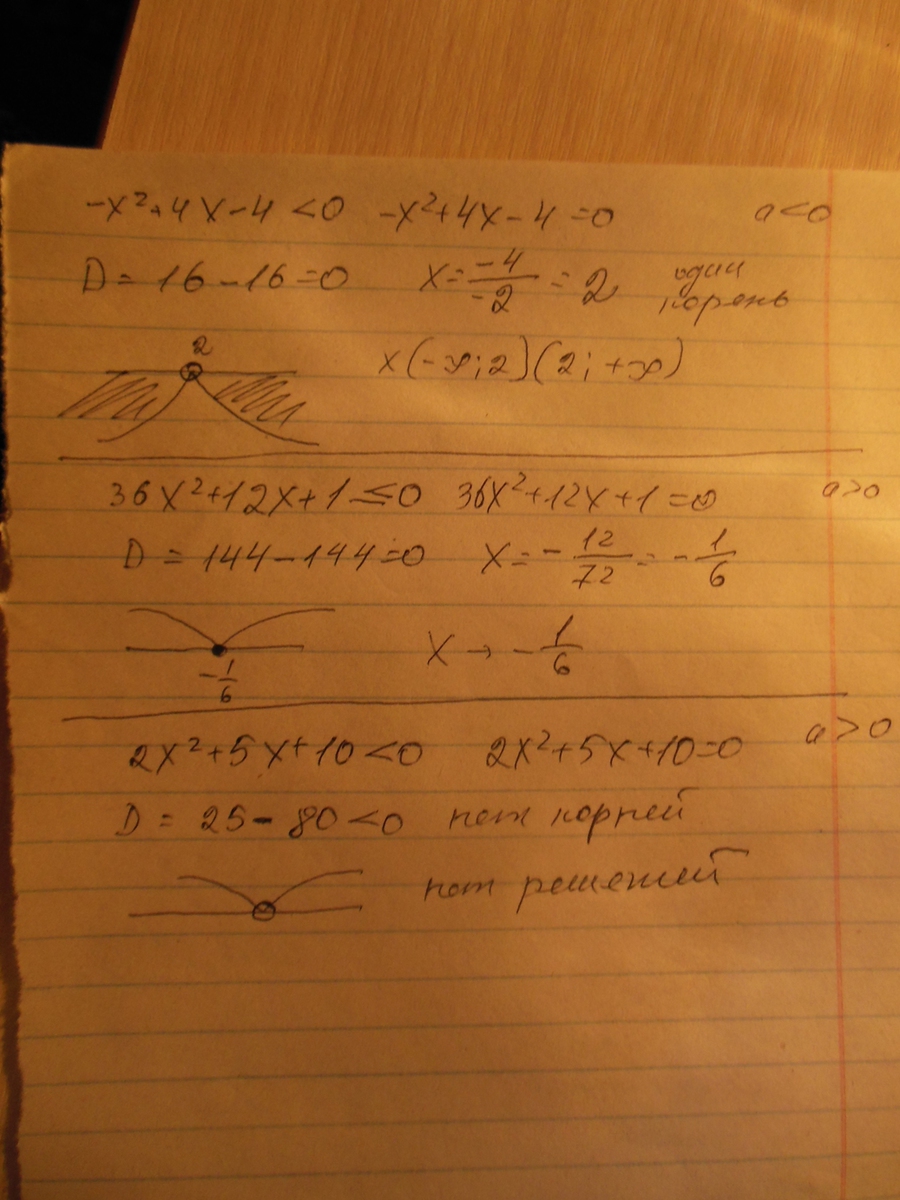 -x²+4x-4<0 -x²+4x-4=0 a<0
D = 16-16=0 x = -4/-2 = 2 один корень
2
x(-∞;2)(2;+∞)
36x²+12x+1≤0 36x²+12x+1=0 a>0
D = 144-144=0 x = -12/72 = -1/6
-1/6
x → -1/6
2x²+5x+10<0 2x²+5x+10=0 a>0
D = 25-80<0 нет корней
нет решений